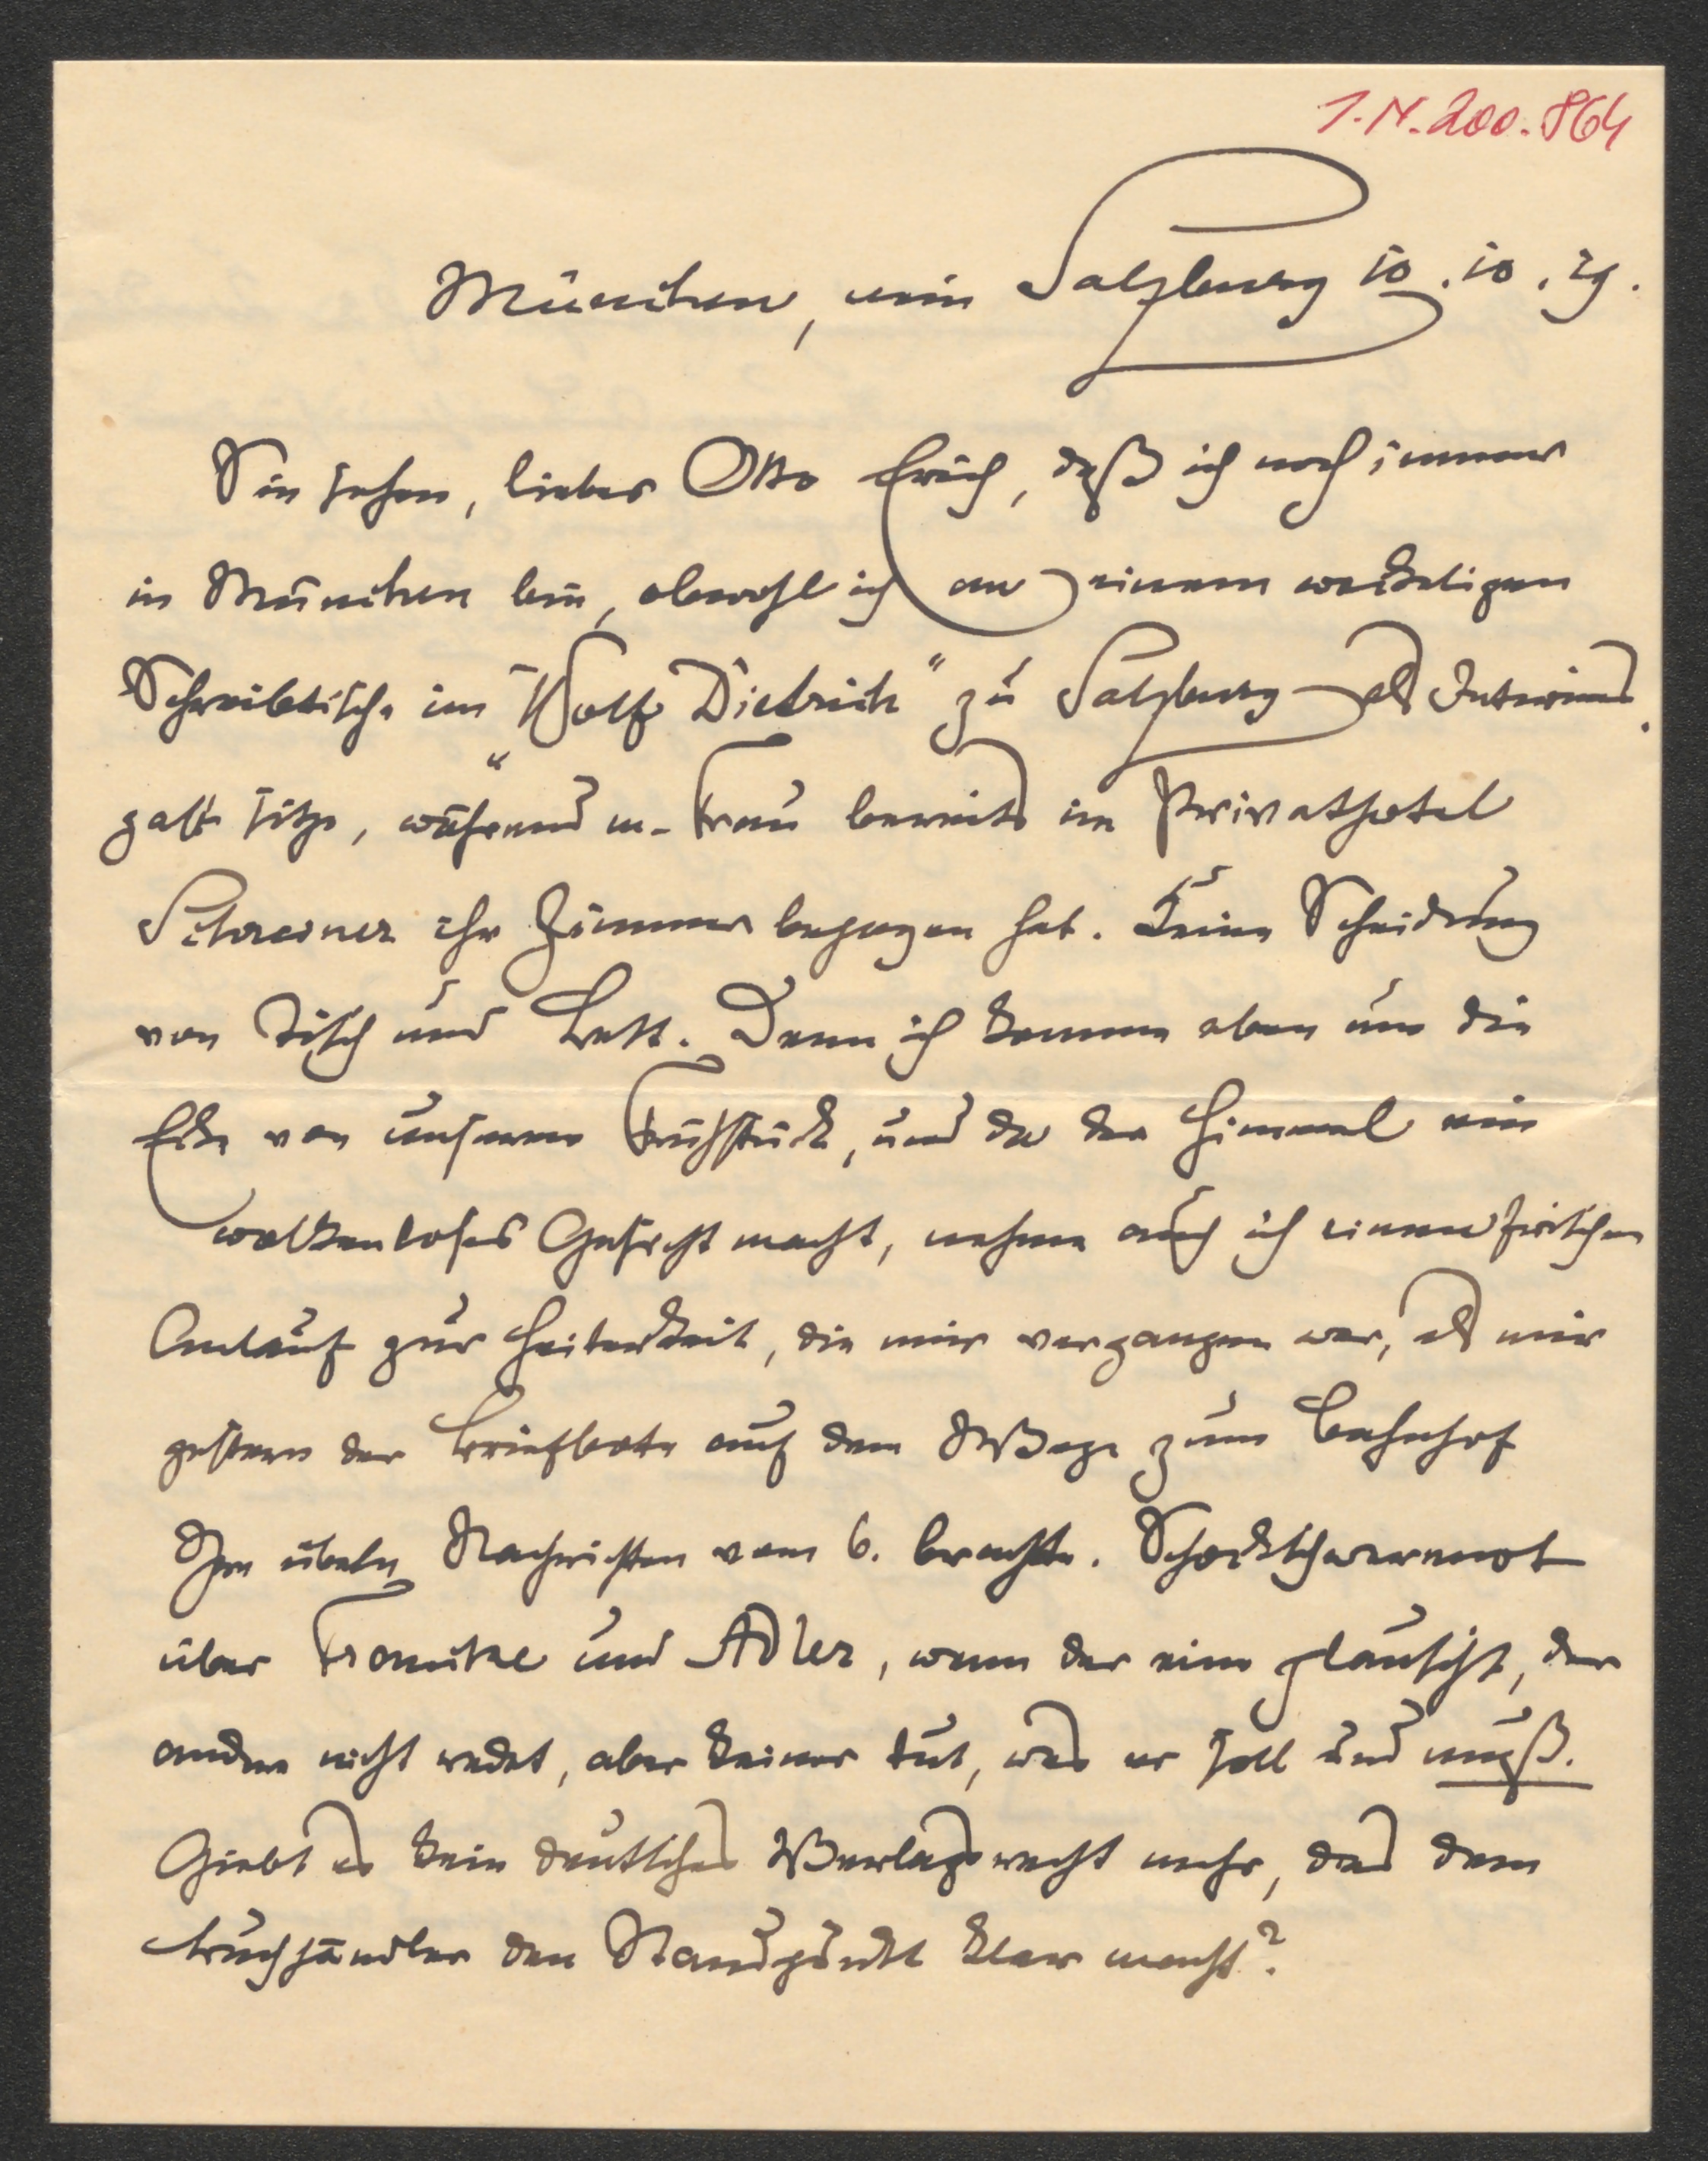 I.N. 200.864
München, nein Salzburg 10.10.29.
Sie sehen, lieber Otto Erich, daß ich noch immer
in München bin, obwohl ich an einem wackeligen
Schreibtische im „Wolf Dietrich“ zu Salzburg als Interims-
gast sitze, während m. Frau bereits im Privathotel
Schreiner ihr Zimmer bezogen hat. Keine Scheidung
von Tisch und Bett. Denn ich komme eben um die
Ecke von unserem Frühstück, und da der Himmel ein
wolkenloses Gesicht macht, nehme auch ich einen frischen
Anlauf zur Heiterkeit, die mir vergangen war, als mir
gestern der Briefbote auf dem Wege zum Bahnhof
Ihre übeln Nachrichten vom 6. brachte. Schockschwerenot
über Francke und Adler, wenn der eine plauscht, der
andere nicht redet, aber keiner tut, was er soll und muß.
Giebt es kein deutsches Verlagsrecht mehr, das dem
Buchhändler den Standpunkt klar macht?